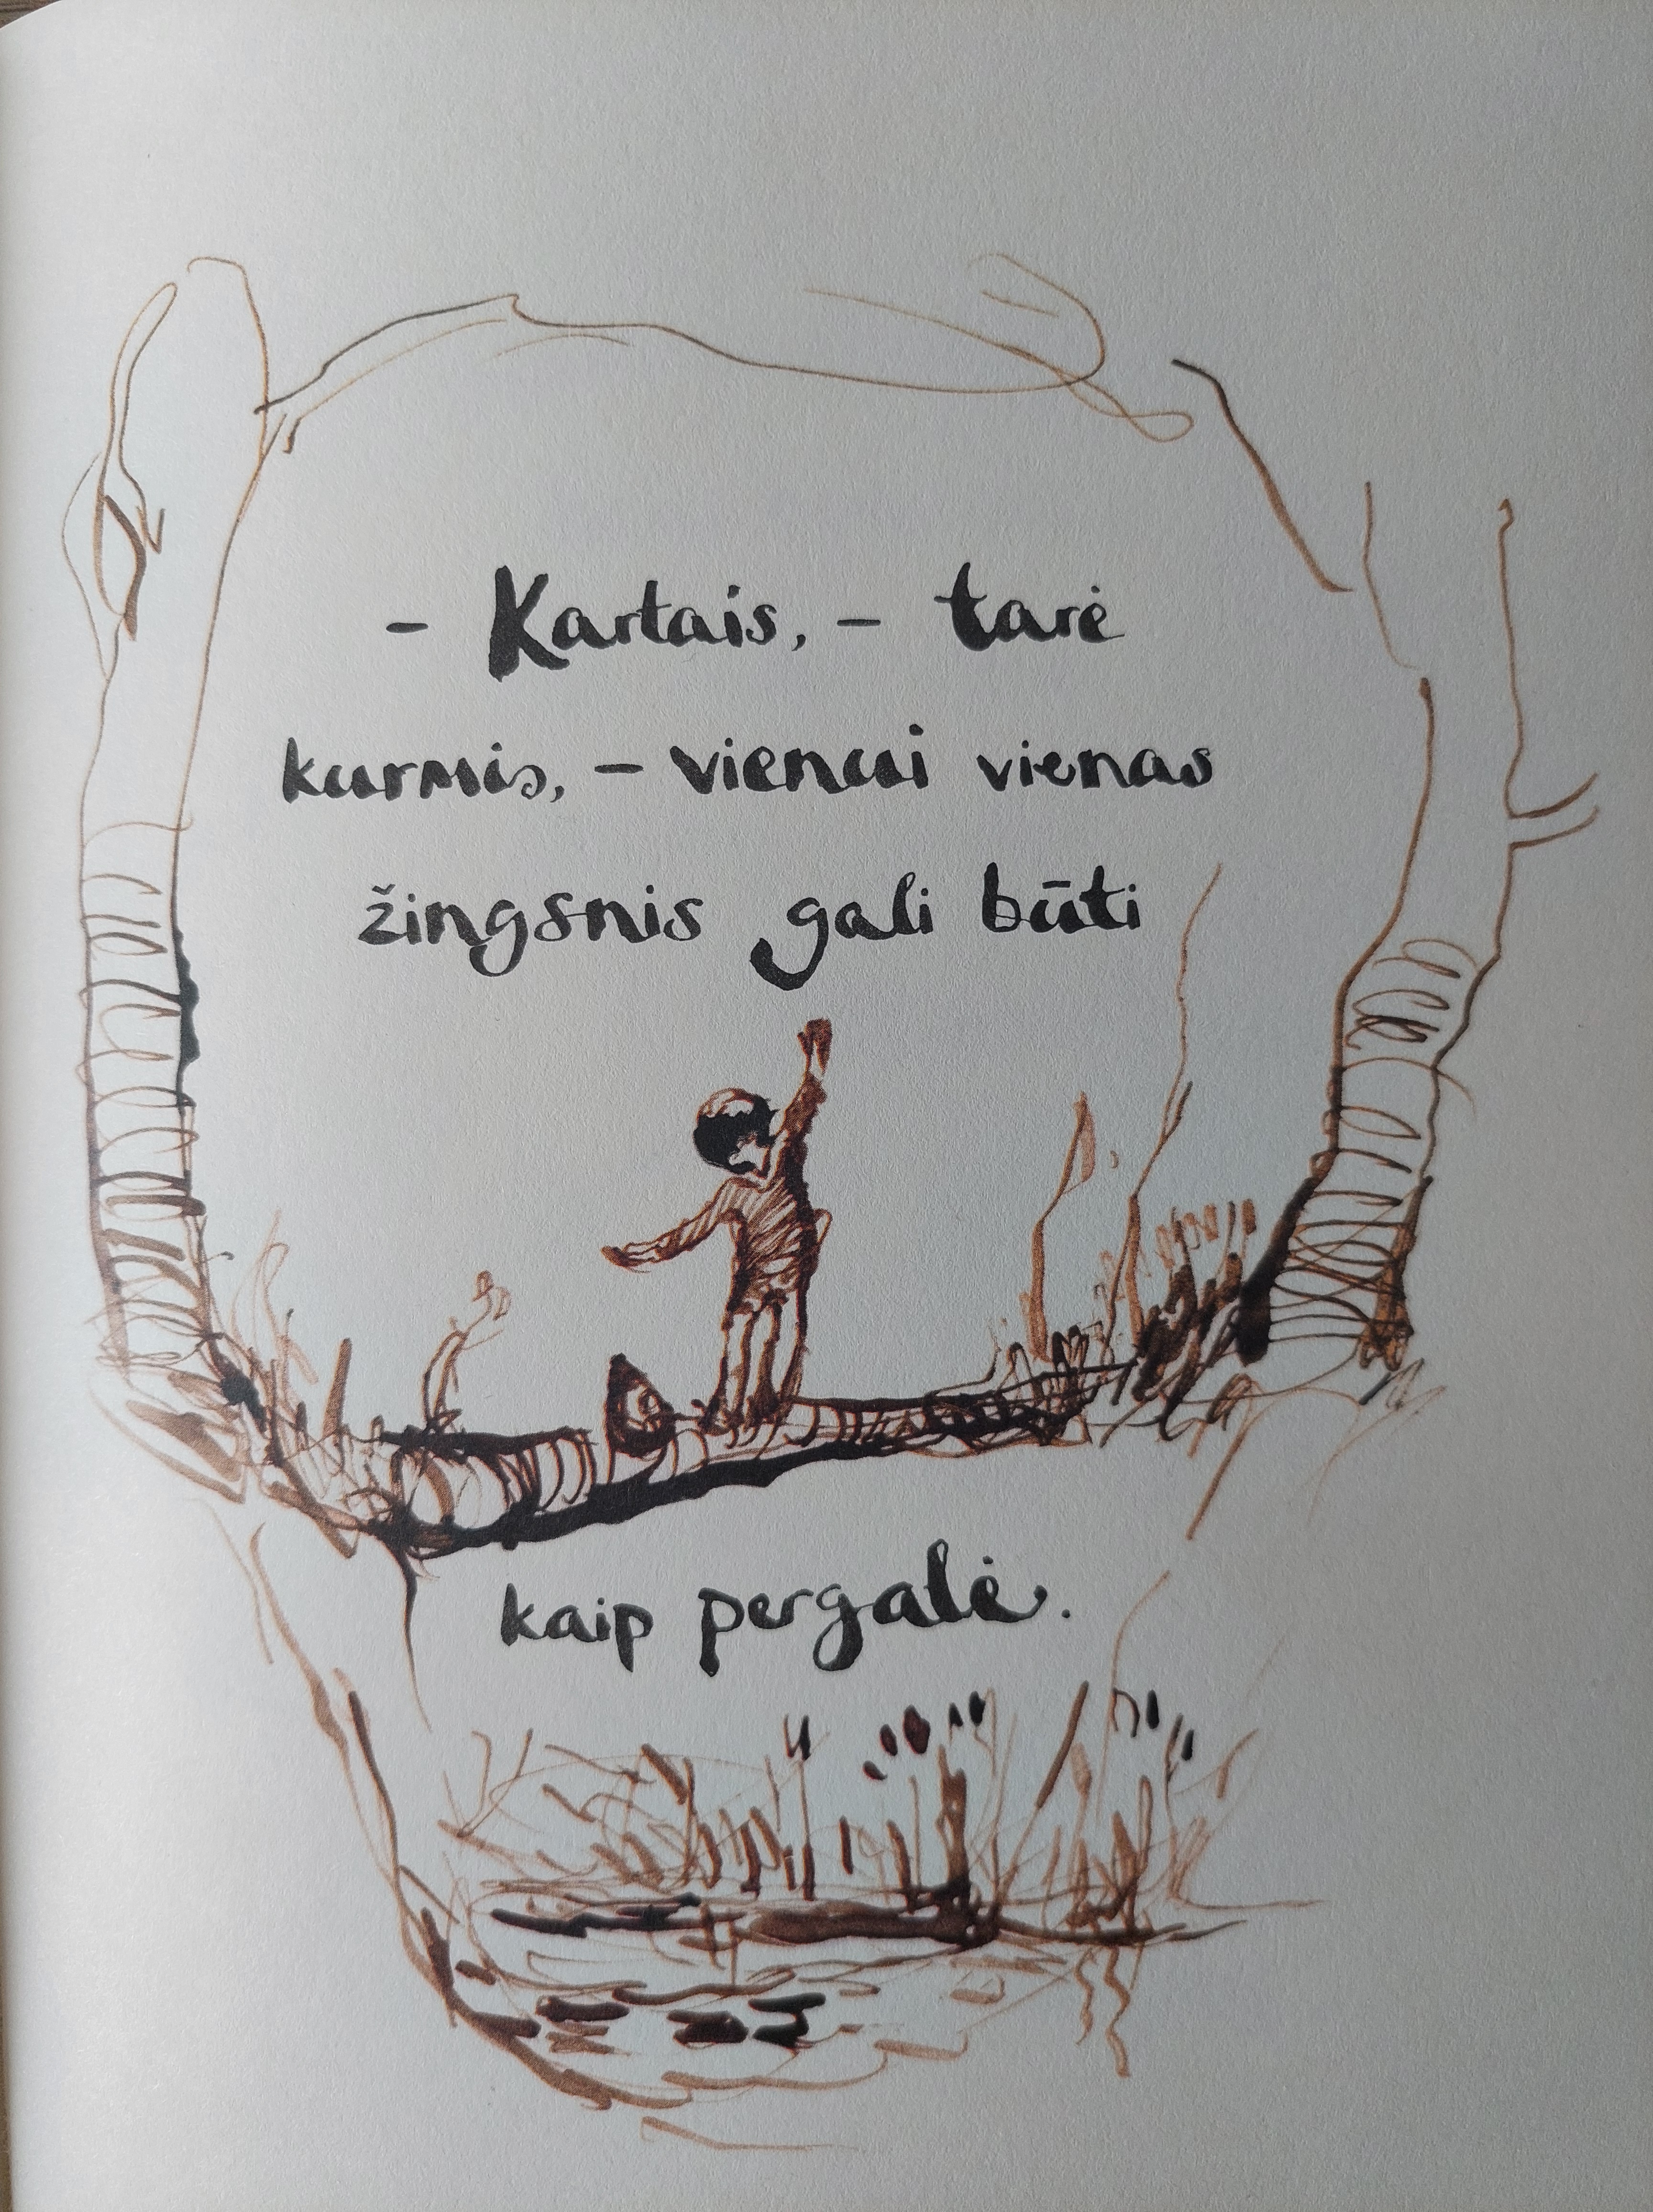 - Kartais, - tarė
kurmis, - vienui vienas
žingsnis gali būti
kaip pergalė.